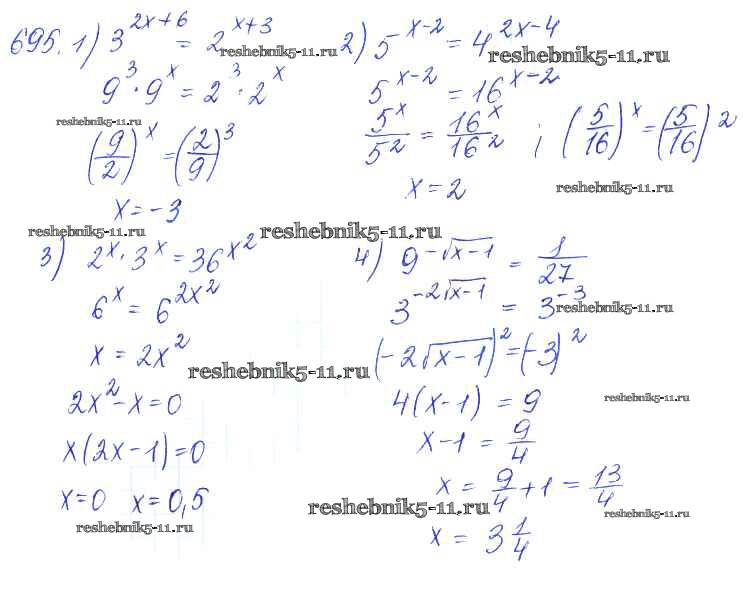 695. 1) 3^(2x+6) = 2^(x+3)
reshebnik5-11.ru
9^3 · 9^x = 2^3 · 2^x
reshebnik5-11.ru
(9/2)^x = (2/9)^3
x = -3
reshebnik5-11.ru
2) 5^(x-2) = 4^(2x-4)
reshebnik5-11.ru
5^(x-2) = 16^(x-2)
5^x/5^2 = 16^x/16^2 ; (5/16)^x = (5/16)^2
x = 2
reshebnik5-11.ru
reshebnik5-11.ru
3) 2^x · 3^x = 36^(x^2)
6^x = 6^(2x^2)
x = 2x^2
reshebnik5-11.ru
2x^2 - x = 0
x(2x-1) = 0
x = 0 x = 0,5
reshebnik5-11.ru
4) 9^(-√(x-1)) = 1/27
3^(-2√(x-1)) = 3^(-3)
reshebnik5-11.ru
(-2√(x-1))^2 = (-3)^2
4(x-1) = 9
reshebnik5-11.ru
x-1 = 9/4
x = 9/4 + 1 = 13/4
reshebnik5-11.ru
reshebnik5-11.ru
x = 3 1/4